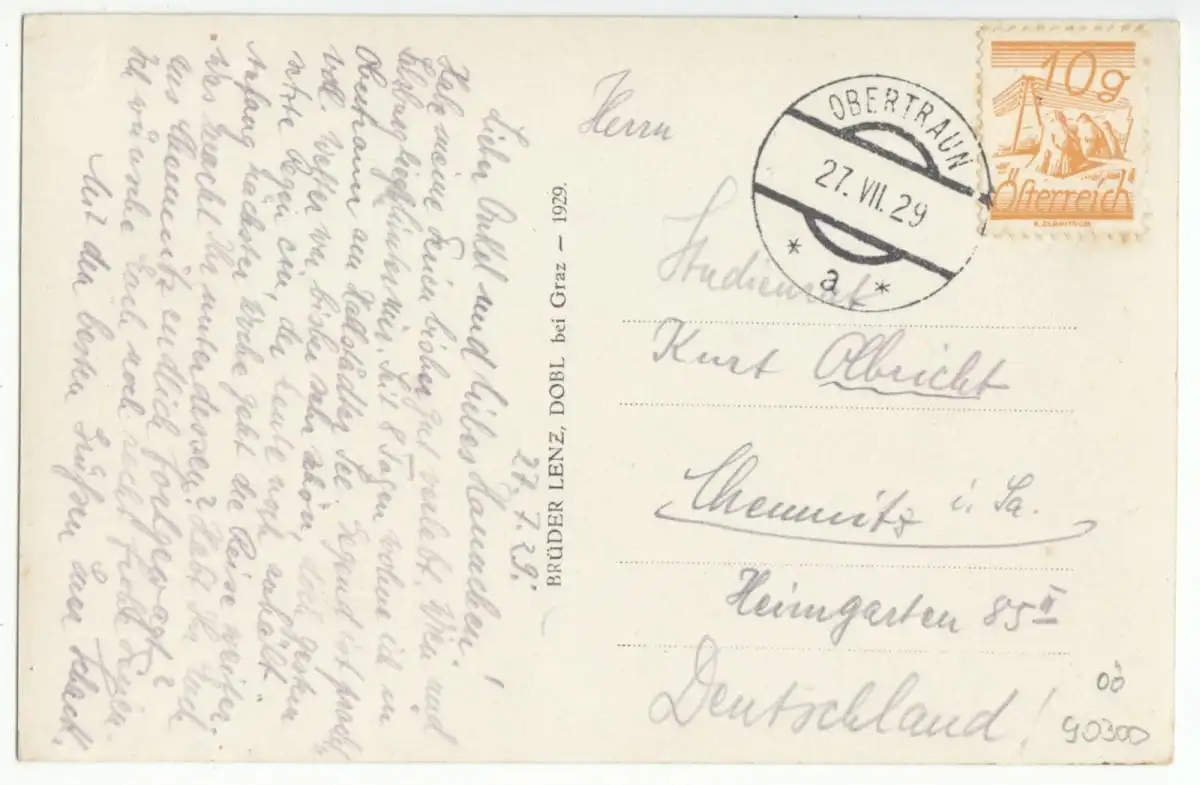 27.7.29.
Lieber Onkel und liebes Hannchen!
Habe meine Ferien bisher gut verlebt. Wien und
Salzburg liegt hinter mir. Seit 8 Tagen wohne ich in
Obertraun am Hallstädter See. Gegend ist pracht-
voll. Wetter war bisher sehr schön, doch gestern
setzte Regen ein, der heute noch anhält.
Anfang nächster Woche geht die Reise weiter.
Was macht Ihr unterdessen? Habt Ihr Euch
aus Chemnitz endlich fortgewagt?
Ich wünsche Euch noch recht frohe Ferien.
Mit den besten Grüßen Euer
BRÜDER LENZ, DOBL bei Graz – 1929.
OBERTRAUN
27. VII. 29
* a *
10g
Österreich
Herrn
Studienrat
Kurt Olbricht
Chemnitz i. Sa.
Heimgarten 85 II
Deutschland!
OÖ
90300